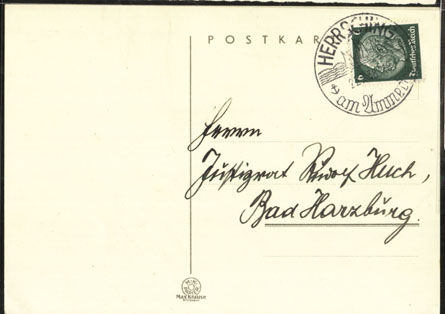 POSTKAR
HERRSCHING
am Ammer
6
Deutsches Reich
Herrn
Justizrat Rudolf Huch,
Bad Harzburg.
Max Krause